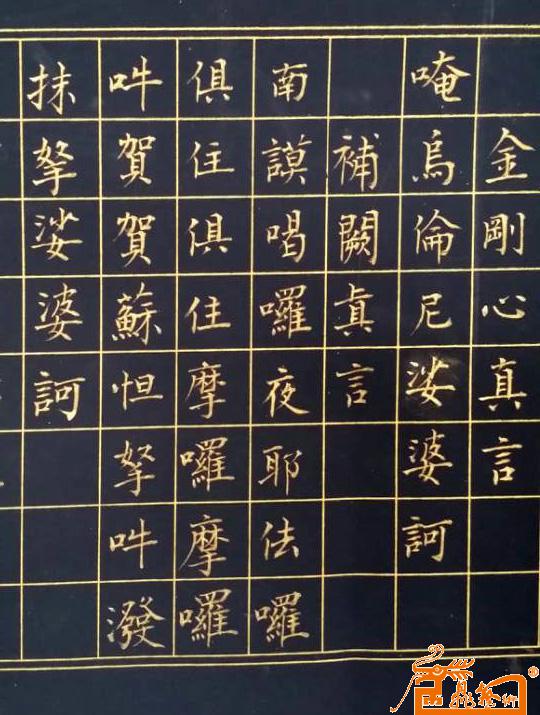 金剛心真言
唵烏倫尼娑婆訶
補闕真言
南謨喝囉夜耶佉囉
俱住俱住摩囉摩囉
吽賀賀蘇怛拏吽潑
抹拏娑婆訶